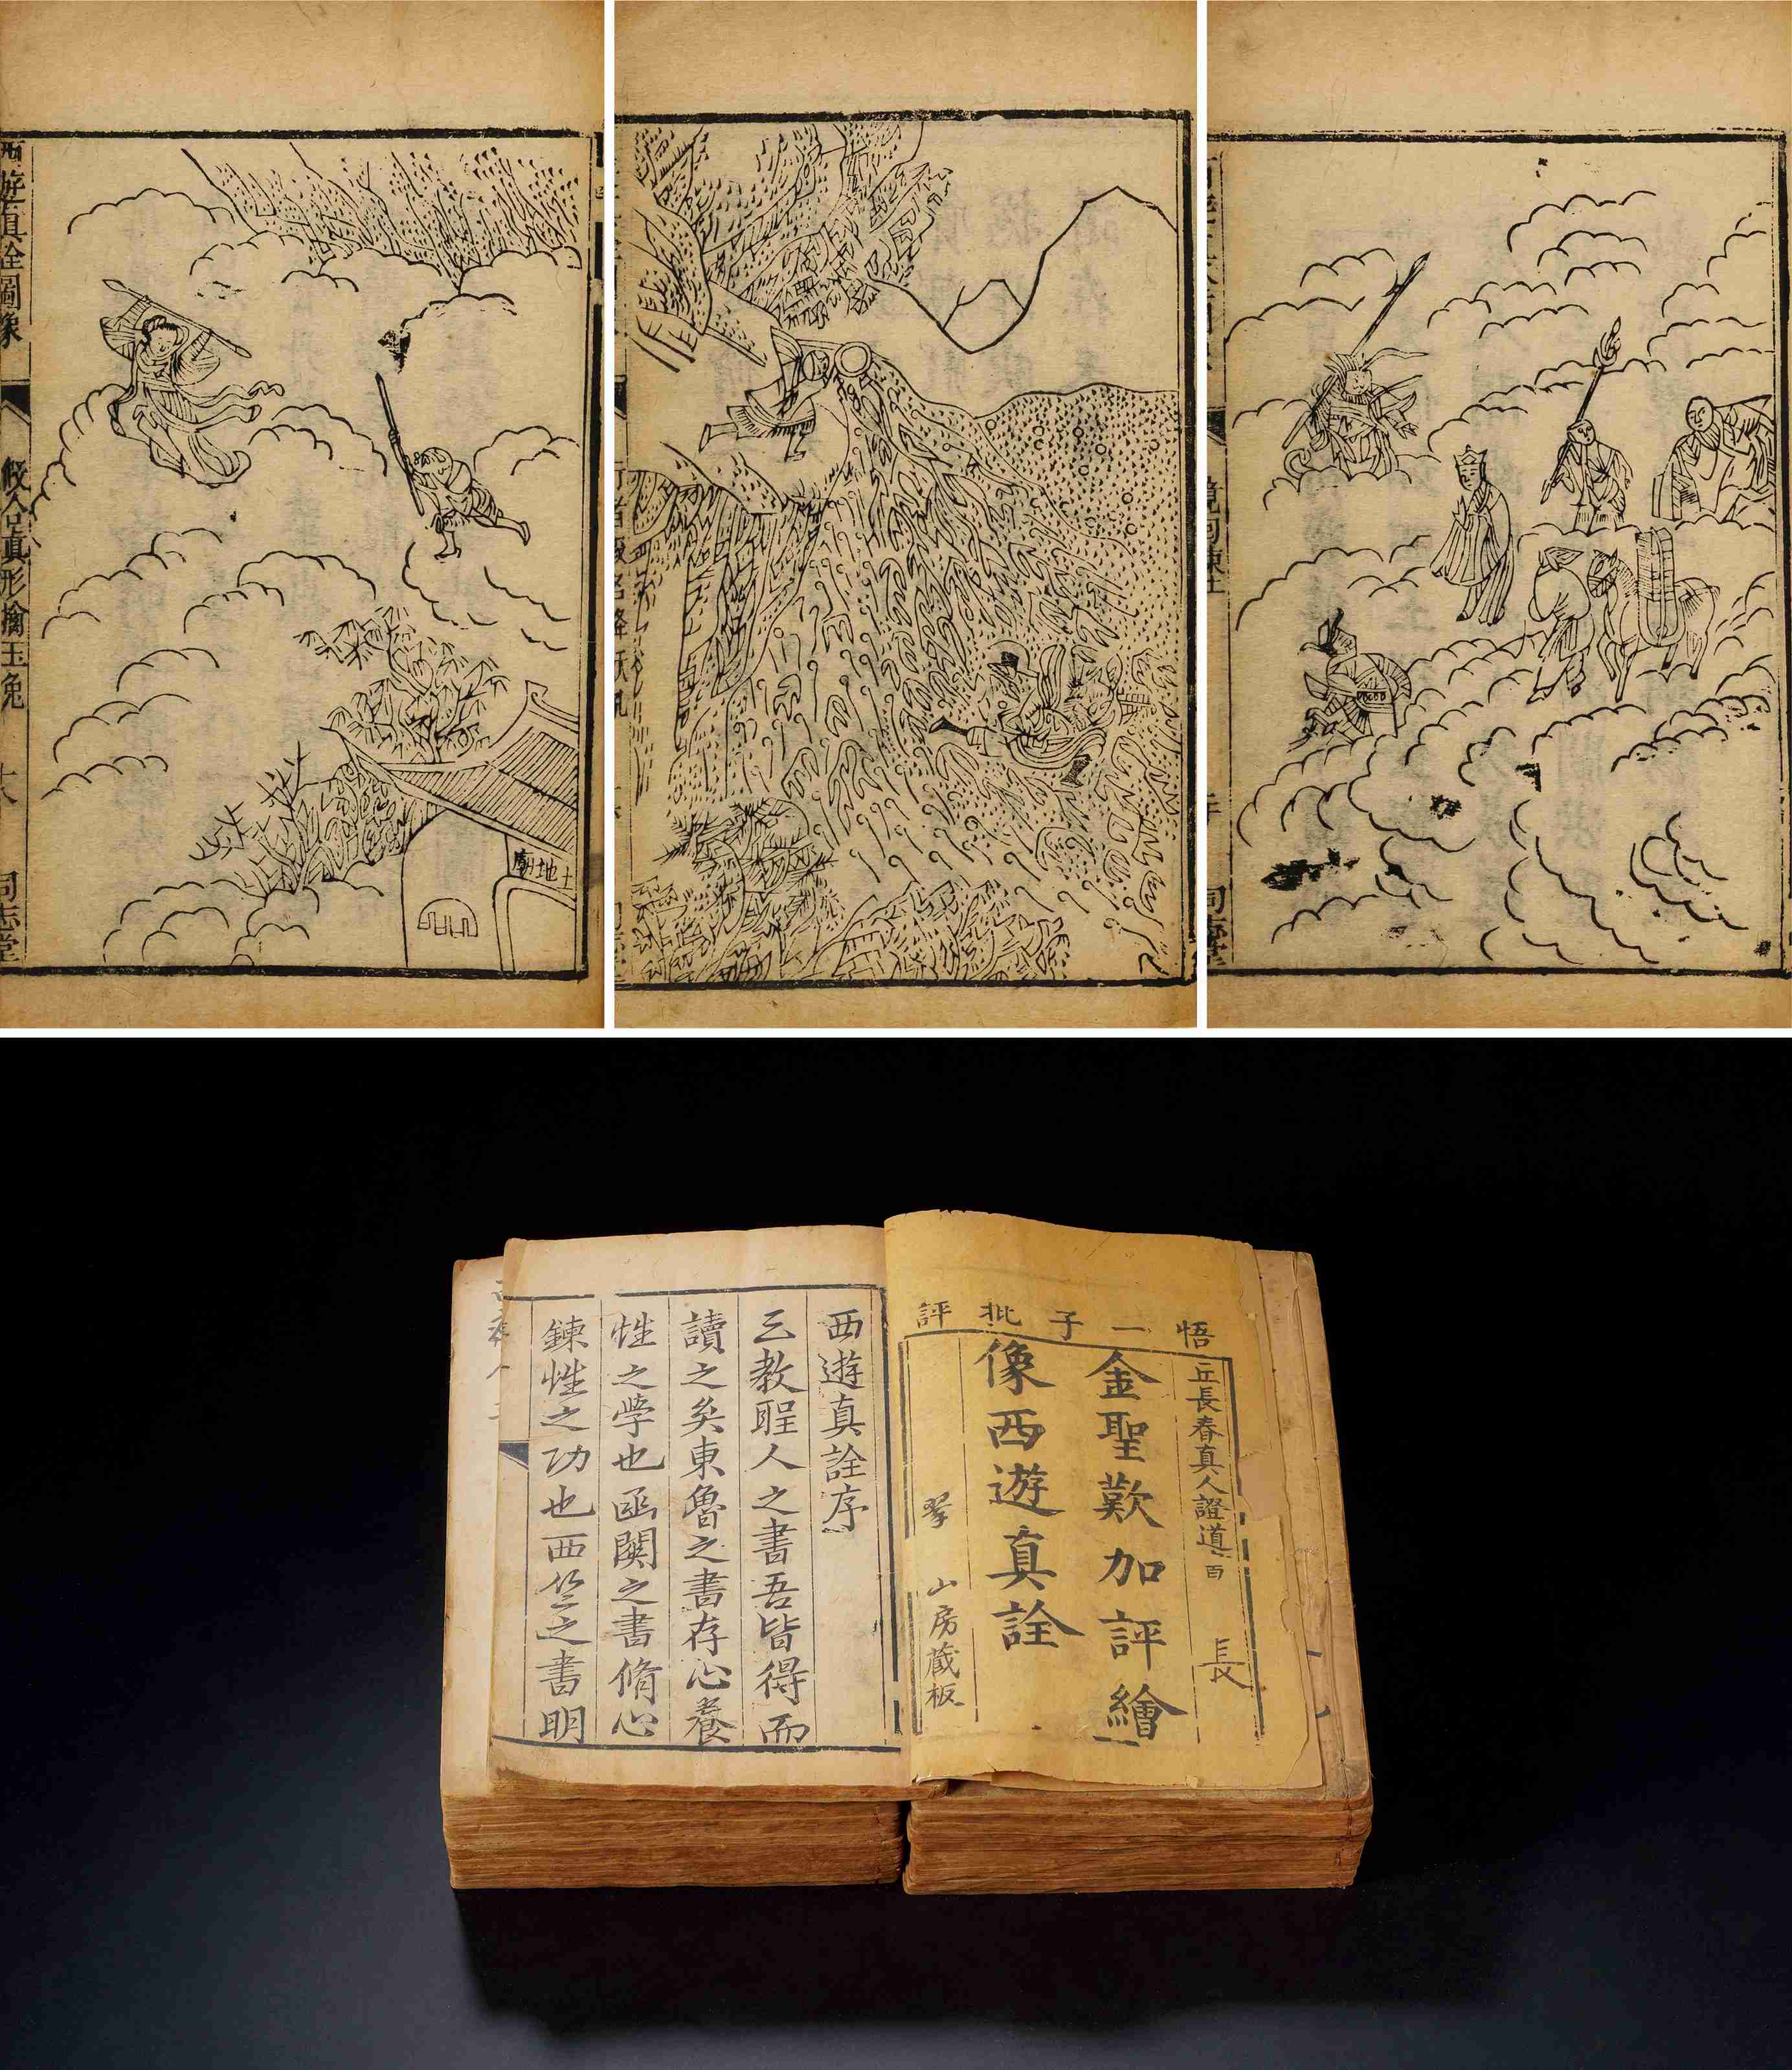 西遊真詮圖像
假合真形擒玉兔
同志堂
土地廟
悟一子批評
丘長春真人證道
長
金聖歎加評繪
像西遊真詮
翠
山房藏板
西遊真詮序
三教聖人之書吾皆得而
讀之矣東魯之書存心養
性之學也函關之書脩心
鍊性之功也西竺之書明